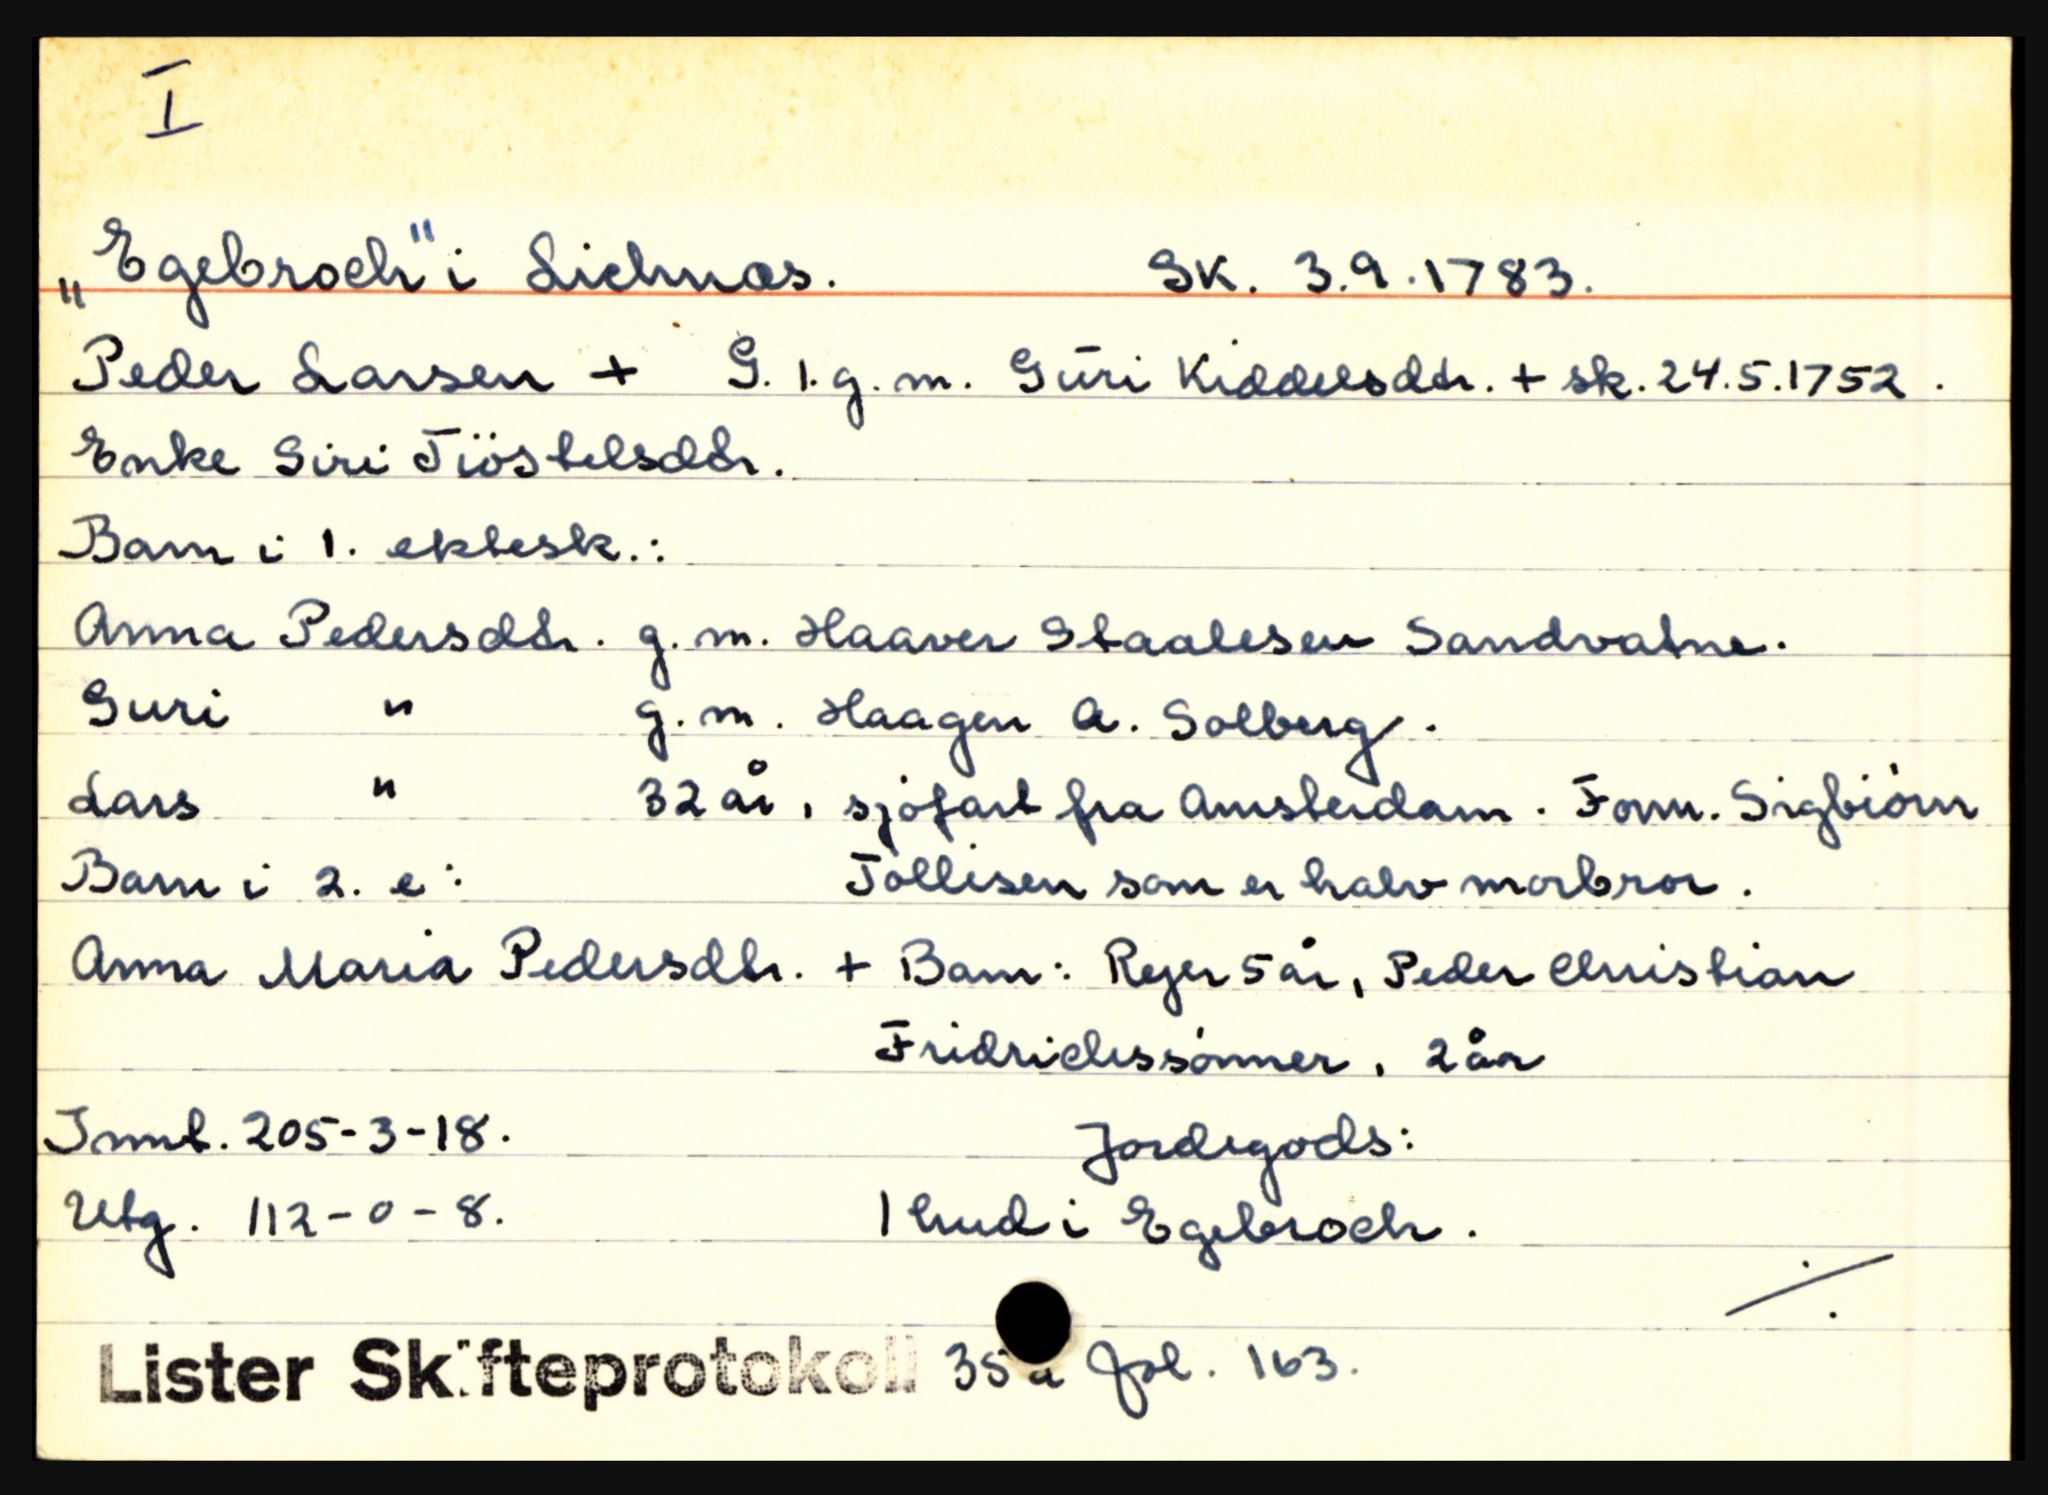 I
„Egebroch" i Lichnæs. Sk. 3.9.1783.
Peder Larsen + G. 1. g. m. Guri Kiddelsdtr. + sk. 24.5.1752.
Enke Siri Tiöstelsdtr.
Barn i 1. ektesk.:
Anna Pedersdtr. g. m. Haaver Staalesen Sandvatne.
Guri " g. m. Haagen A. Solberg.
Lars " 32 år, sjøfart fra Amsterdam. Form. Sigbiørn
Barn i 2. e: Tollisen som er halv morbror.
Anna Maria Pedersdtr. + Barn: Rejer 5 år, Peder Christian
Fridrichssønner, 2 år
Innt. 205-3-18. Jordegods:
Utg. 112-0-8. 1 hud i Egebroch.
./.
Lister Skifteprotokoll 35 a fol. 163.